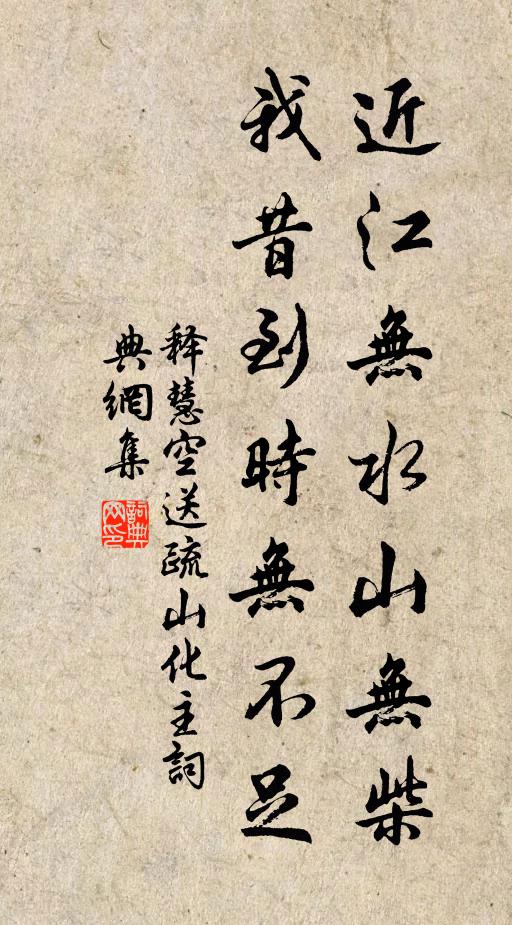 近江無水山無柴
我昔到時無不足
释慧空送疏山化主詞
典網集
詞典
网印